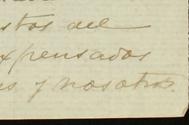 stos del
xpensados
s y nosotros.